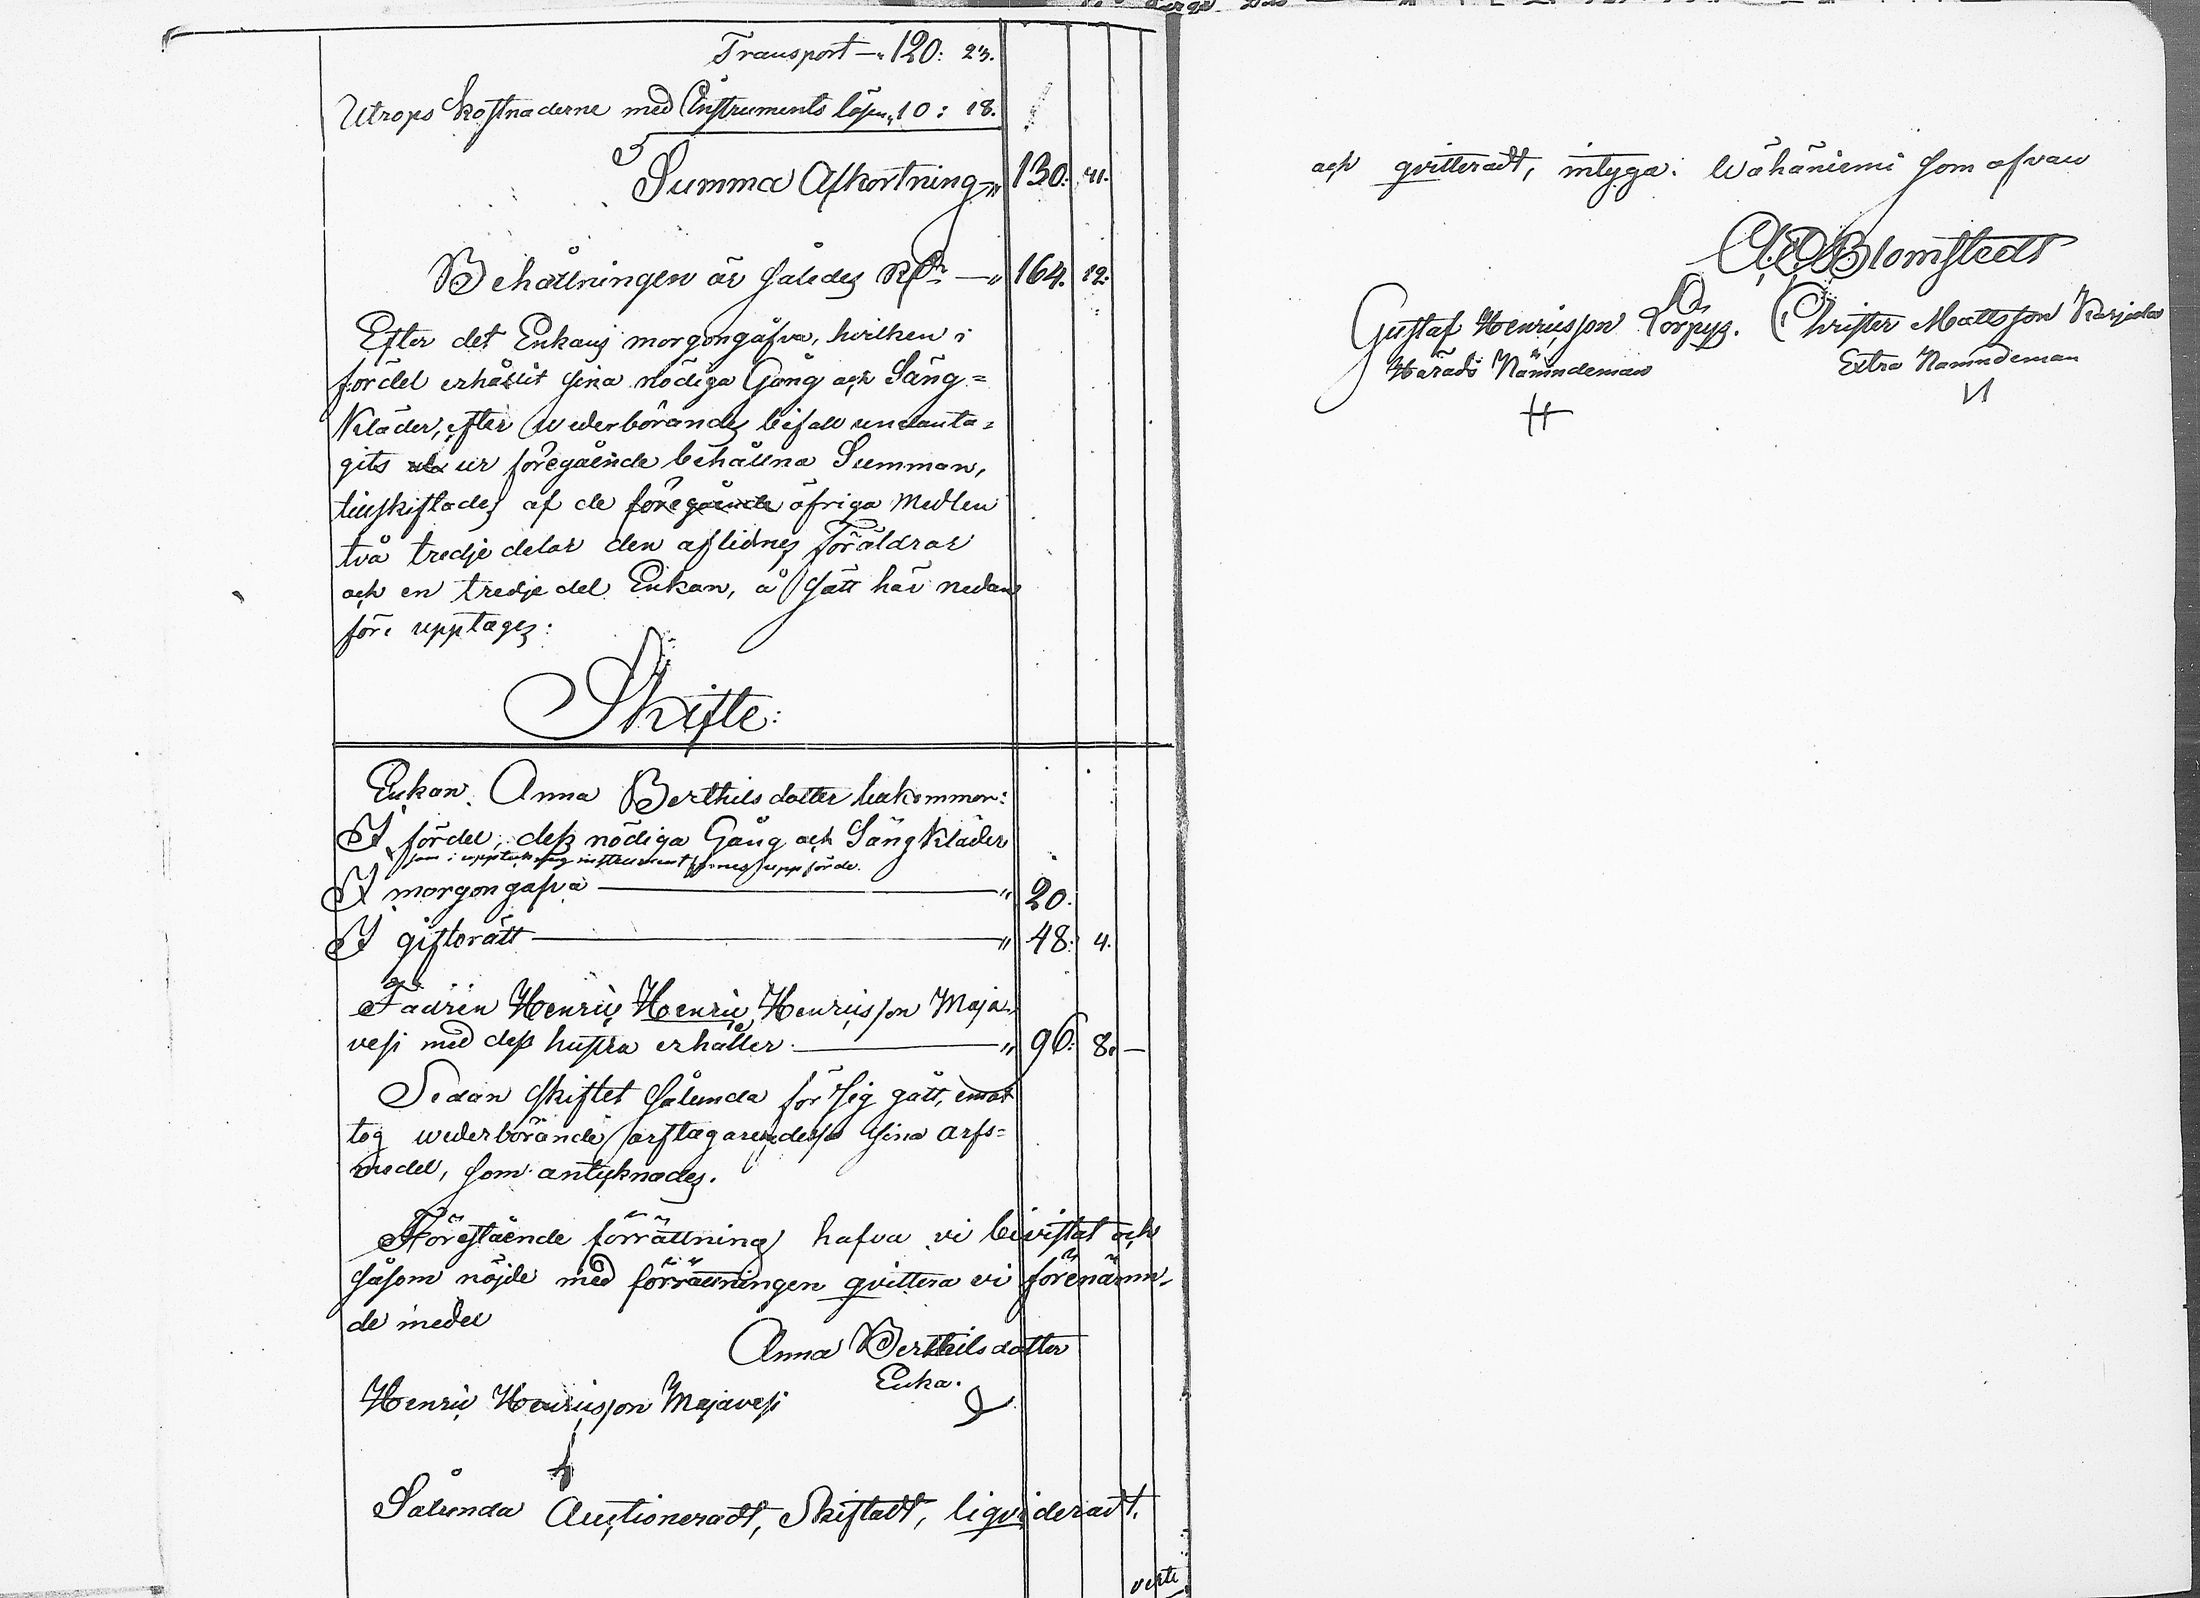 Transport — " 120: 23.
Utrops kostnaderne med Instruments lösen " 10: 18.
Summa Afkortning — " 130: 41.
Behållningen är således RD:r — " 164. 12.
Efter det Enkans morgongåfva, hvilken i
fördel erhållit sina nödiga Gång och Säng=
Kläder, efter wederbörandes bifall undanta=
gits ur föregående behållna Summan,
tillskiftades af de föregående öfriga medlen
två tredje delar den aflidnes Föräldrar
och en tredje del Enkan, å sätt här nedan
före upptages:
Skifte:
Enkan Anna Berthils dotter bekommer:
I fördel, dess nödiga Gång och Sängkläder
som i uppteknings instrument finnes uppförde.
I morgongafva — " 20.
I giftorätt — " 48: 4.
Fadren Henric Henric Henricsson Maja=
vesi med dess hustru erhåller — " 96: 8. —
Sedan skiftet sålunda för sig gått, emot
tog wederbörande arftagare desse sina arfs=
medel, som anteknades.
Förestående förrättning hafva vi bevistat och
såsom nöjde med förrättningen qvittera vi förenämn=
de medel
Anna Berthils dotter
Enka.
Henric Henricsson Majavesi
Sålunda Auctioneradt, Skiftadt, liqvideradt,
verte
och qvitteradt, intyga: Wähäniemi som ofvan
Blomstedt
Gustaf Henricsson Torpys. Christer Mattsson Karjala
Härads Nämndeman Extra Namndeman